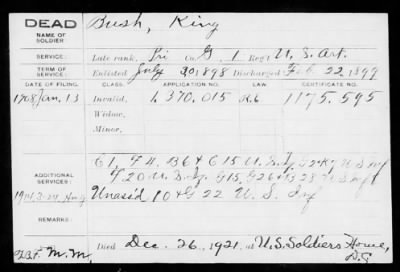 DEAD
NAME OF SOLDIER
Bush, King
SERVICE:
Late rank, Pri Co. G, 1 Reg't U. S. Art.
TERM OF SERVICE:
Enlisted July 20, 1898 Discharged Feb. 22, 1899
DATE OF FILING. CLASS. APPLICATION NO. LAW. CERTIFICATE NO.
1908 Jan. 13 Invalid, 1,370,015 1175,595
Widow,
Minor,
ADDITIONAL SERVICES:
C 1, F 4, B 6 & C 15 U. S.
Unas'd 10 & G 22 U. S. Inf
REMARKS:
M. M.
Died Dec. 26, 1921, at U.S. Soldiers Home,
D.C.